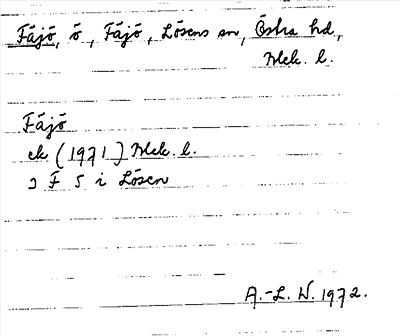 Fäjö, ö, Fäjö, Lösens sn, Östra hd,
Blek. l.
Fäjö
ek (1971) Blek. l.
3 F 5 i Lösen
A.-L. W. 1972.